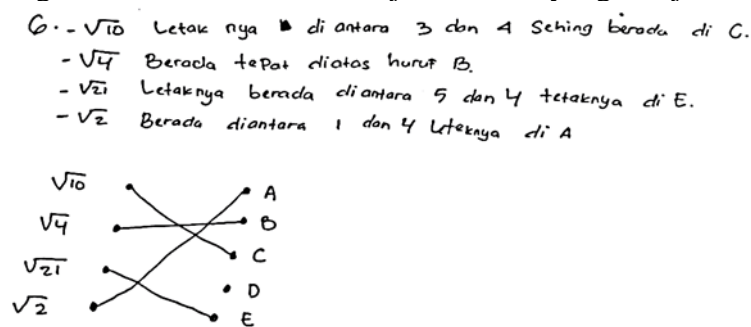 6. - √10 Letak nya di antara 3 dan 4 Sehing berada di C.
- √4 Berada tepat diatas huruf B.
- √21 Letaknya berada diantara 5 dan 4 tetaknya di E.
- √2 Berada diantara 1 dan 4 leteknya di A
√10 A
√4 B
C
√21 D
√2 E